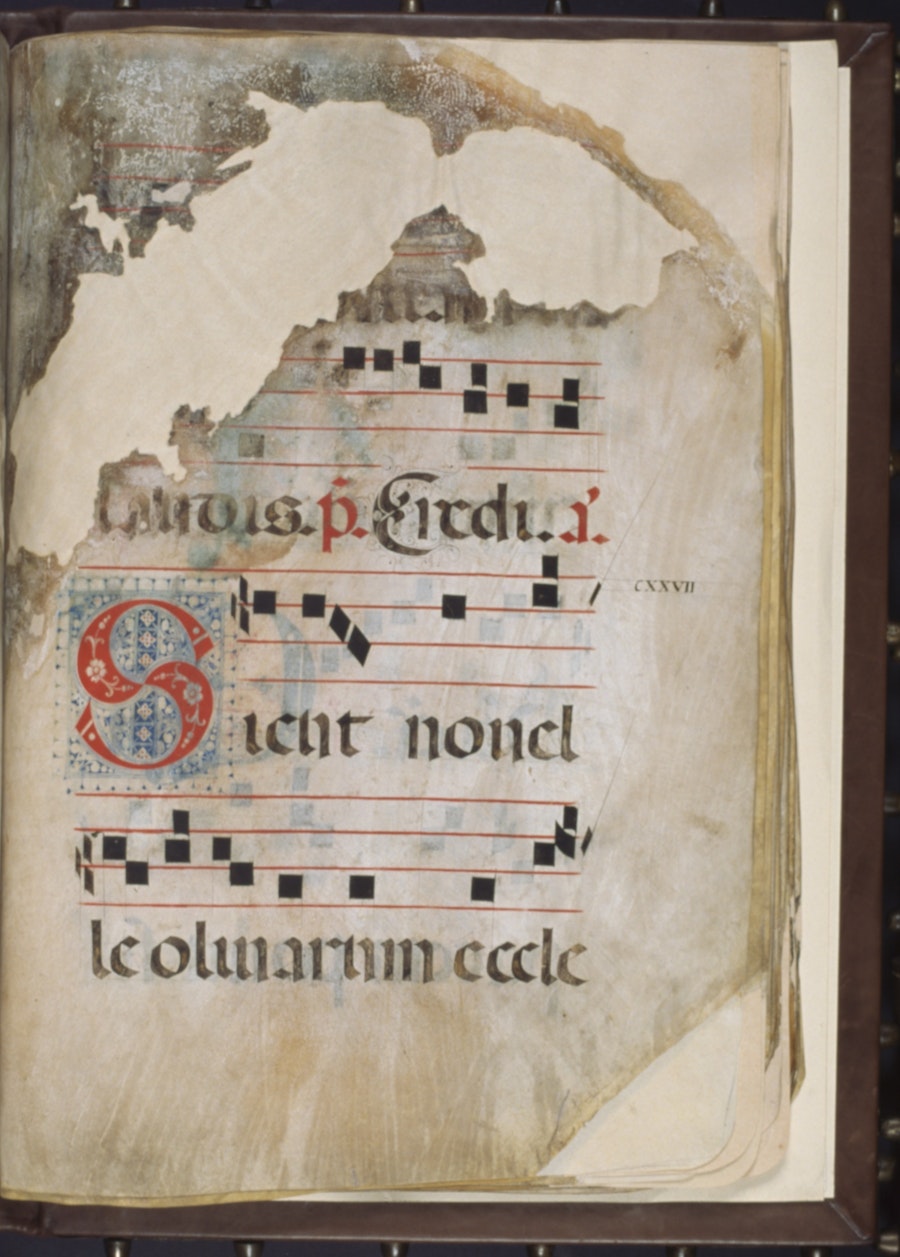 salutaris. p̄. Credi. a̅.
CXXVII
Sicut nouel
le oliuarum eccle